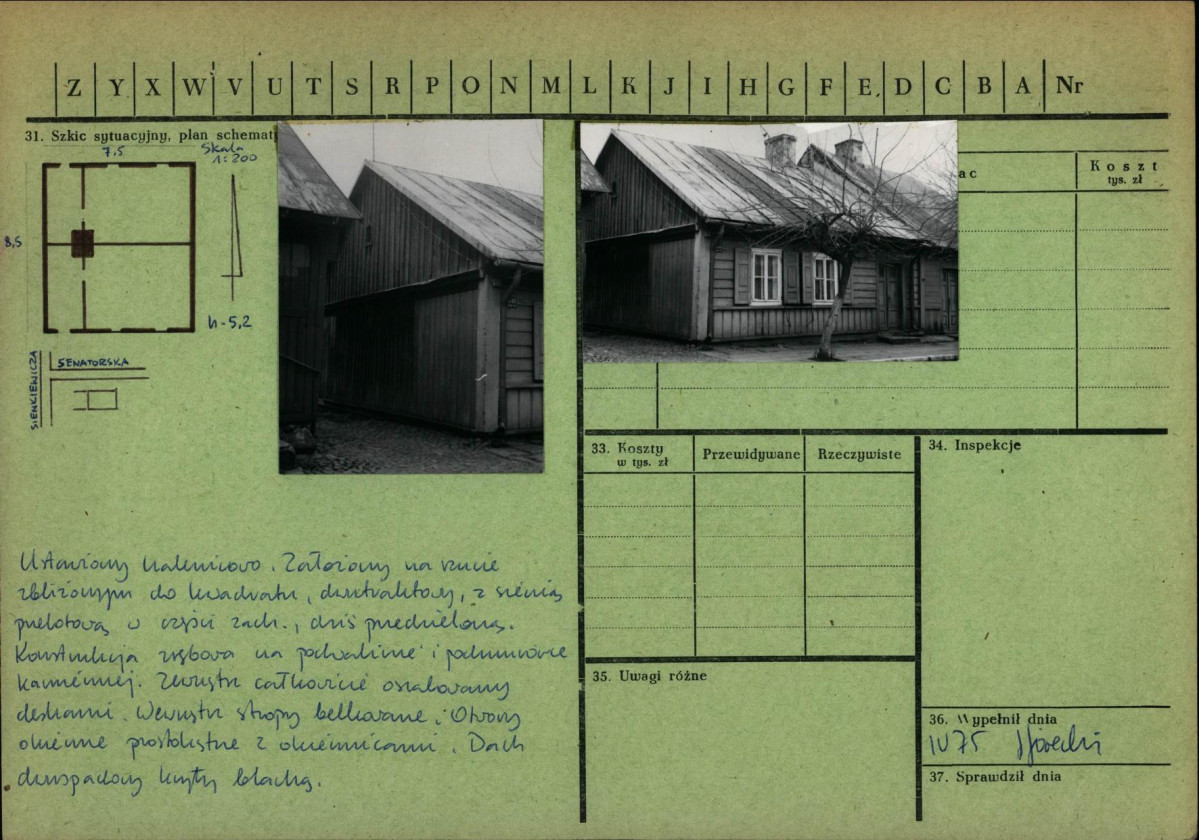 Z Y X W V U T S R P O N M L K J I H G F E D C B A Nr
31. Szkic sytuacyjny, plan schemat
7.5
Skala
1:200
8,5
h-5,2
SIENKIEWICZA
SENATORSKA
ac
Koszt
tys. zł
33. Koszty
w tys. zł
Przewidywane
Rzeczywiste
34. Inspekcje
35. Uwagi różne
36. Wypełnił dnia
IV 75
37. Sprawdził dnia
Ustawiony kalenicowo. Założony na rzucie
zbliżonym do kwadratu, dwutraktowy, z sienią
przelotową w części zach., dziś przedzieloną.
Konstrukcja zrębowa na podwalinie i podmurówce
kamiennej. Zewnątrz całkowicie oszalowany
deskami. Wewnątrz stropy belkowane. Otwory
okienne prostokątne z okiennicami. Dach
dwuspadowy kryty blachą.